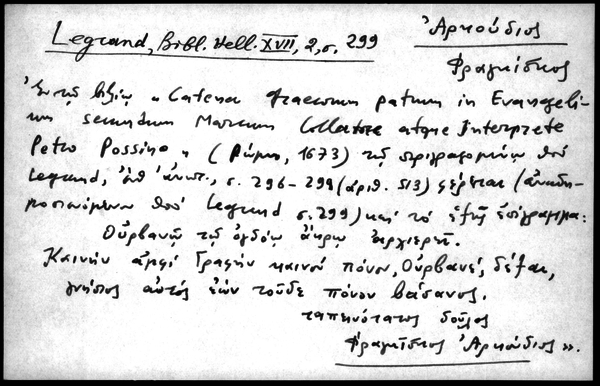 Legrand, Bibl. Hell. XVII, 2, σ. 299
Ἀρκούδιος
Φραγκῖσκος
Ἐν τῷ βιβλίῳ « Catena Graecorum patrum in Evangeli-
um secundum Marcum Collectore atque Interprete
Petro Possino » (Ρώμη, 1673) τῷ περιγραφομένῳ ὑπὸ
Legrand, ἔνθ' ἀνωτ., σ. 296-299 (ἀριθ. 513) φέρεται (ἀναδη-
μοσιευόμενον ὑπὸ Legrand σ. 299) καὶ τὸ ἑξῆς ἐπίγραμμα:
Οὐρβανῷ τῷ ὀγδόῳ ἄκρῳ ἀρχιερεῖ.
Καινὴν ἀμφὶ Γραφὴν καινοῦ πόνον, Οὐρβανέ, δέξαι,
γνήσιος αὐτὸς ἐὼν τοῦδε πόνου βάσανος.
ταπεινότατος δοῦλος
Φραγκῖσκος Ἀρκούδιος ».